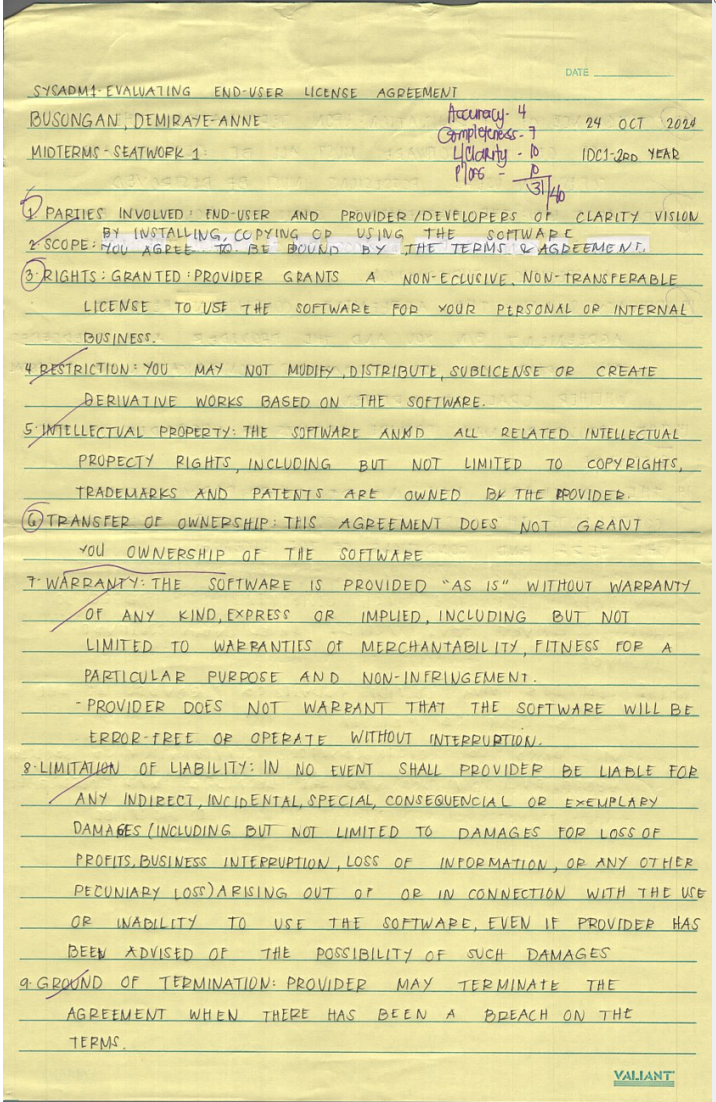 DATE
SYSADM1-EVALUATING END-USER LICENSE AGREEMENT
BUSONGAN, DEMIRAYE-ANNE
Accuracy - 4
24 OCT 2024
Completeness - 7
MIDTERMS - SEATWORK 1
Clarity - 10
IDC1-3RD YEAR
10
31/40
1. PARTIES INVOLVED: END-USER AND PROVIDER/DEVELOPERS OF CLARITY VISION
BY INSTALLING, COPYING OR USING THE SOFTWARE
2. SCOPE: YOU AGREE TO BE BOUND BY THE TERMS & AGREEMENT.
3. RIGHTS: GRANTED: PROVIDER GRANTS A NON-ECLUSIVE, NON-TRANSFERABLE
LICENSE TO USE THE SOFTWARE FOR YOUR PERSONAL OR INTERNAL
BUSINESS.
4. RESTRICTION: YOU MAY NOT MODIFY, DISTRIBUTE, SUBLICENSE OR CREATE
DERIVATIVE WORKS BASED ON THE SOFTWARE.
5. INTELLECTUAL PROPERTY: THE SOFTWARE AND ALL RELATED INTELLECTUAL
PROPECTY RIGHTS, INCLUDING BUT NOT LIMITED TO COPYRIGHTS,
TRADEMARKS AND PATENTS ARE OWNED BY THE PROVIDER.
6 TRANSFER OF OWNERSHIP: THIS AGREEMENT DOES NOT GRANT
YOU OWNERSHIP OF THE SOFTWARE
7. WARRANTY: THE SOFTWARE IS PROVIDED "AS IS" WITHOUT WARRANTY
OF ANY KIND, EXPRESS OR IMPLIED, INCLUDING BUT NOT
LIMITED TO WARRANTIES OF MERCHANTABILITY, FITNESS FOR A
PARTICULAR PURPOSE AND NON-INFRINGEMENT.
- PROVIDER DOES NOT WARRANT THAT THE SOFTWARE WILL BE
ERROR-FREE OR OPERATE WITHOUT INTERRUPTION.
8. LIMITATION OF LIABILITY: IN NO EVENT SHALL PROVIDER BE LIABLE FOR
ANY INDIRECT, INCIDENTAL, SPECIAL, CONSEQUENCIAL OR EXEMPLARY
DAMAGES (INCLUDING BUT NOT LIMITED TO DAMAGES FOR LOSS OF
PROFITS, BUSINESS INTERRUPTION, LOSS OF INFORMATION, OR ANY OTHER
PECUNIARY LOSS) ARISING OUT OF OR IN CONNECTION WITH THE USE
OR INABILITY TO USE THE SOFTWARE, EVEN IF PROVIDER HAS
BEEN ADVISED OF THE POSSIBILITY OF SUCH DAMAGES
9. GROUND OF TERMINATION: PROVIDER MAY TERMINATE THE
AGREEMENT WHEN THERE HAS BEEN A BREACH ON THE
TERMS.
VALIANT